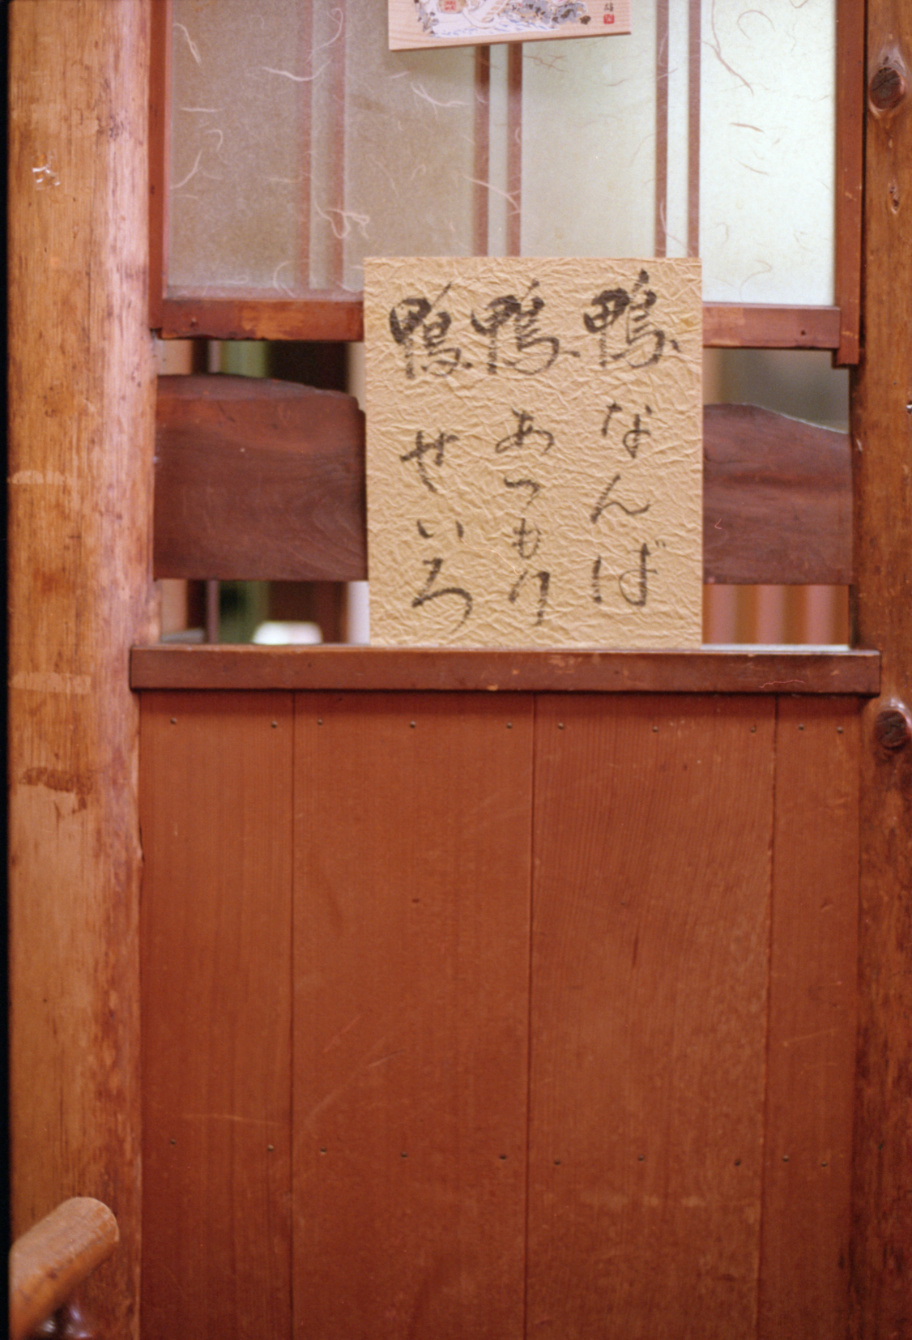 鴨なんば
鴨あつもり
鴨せいろ